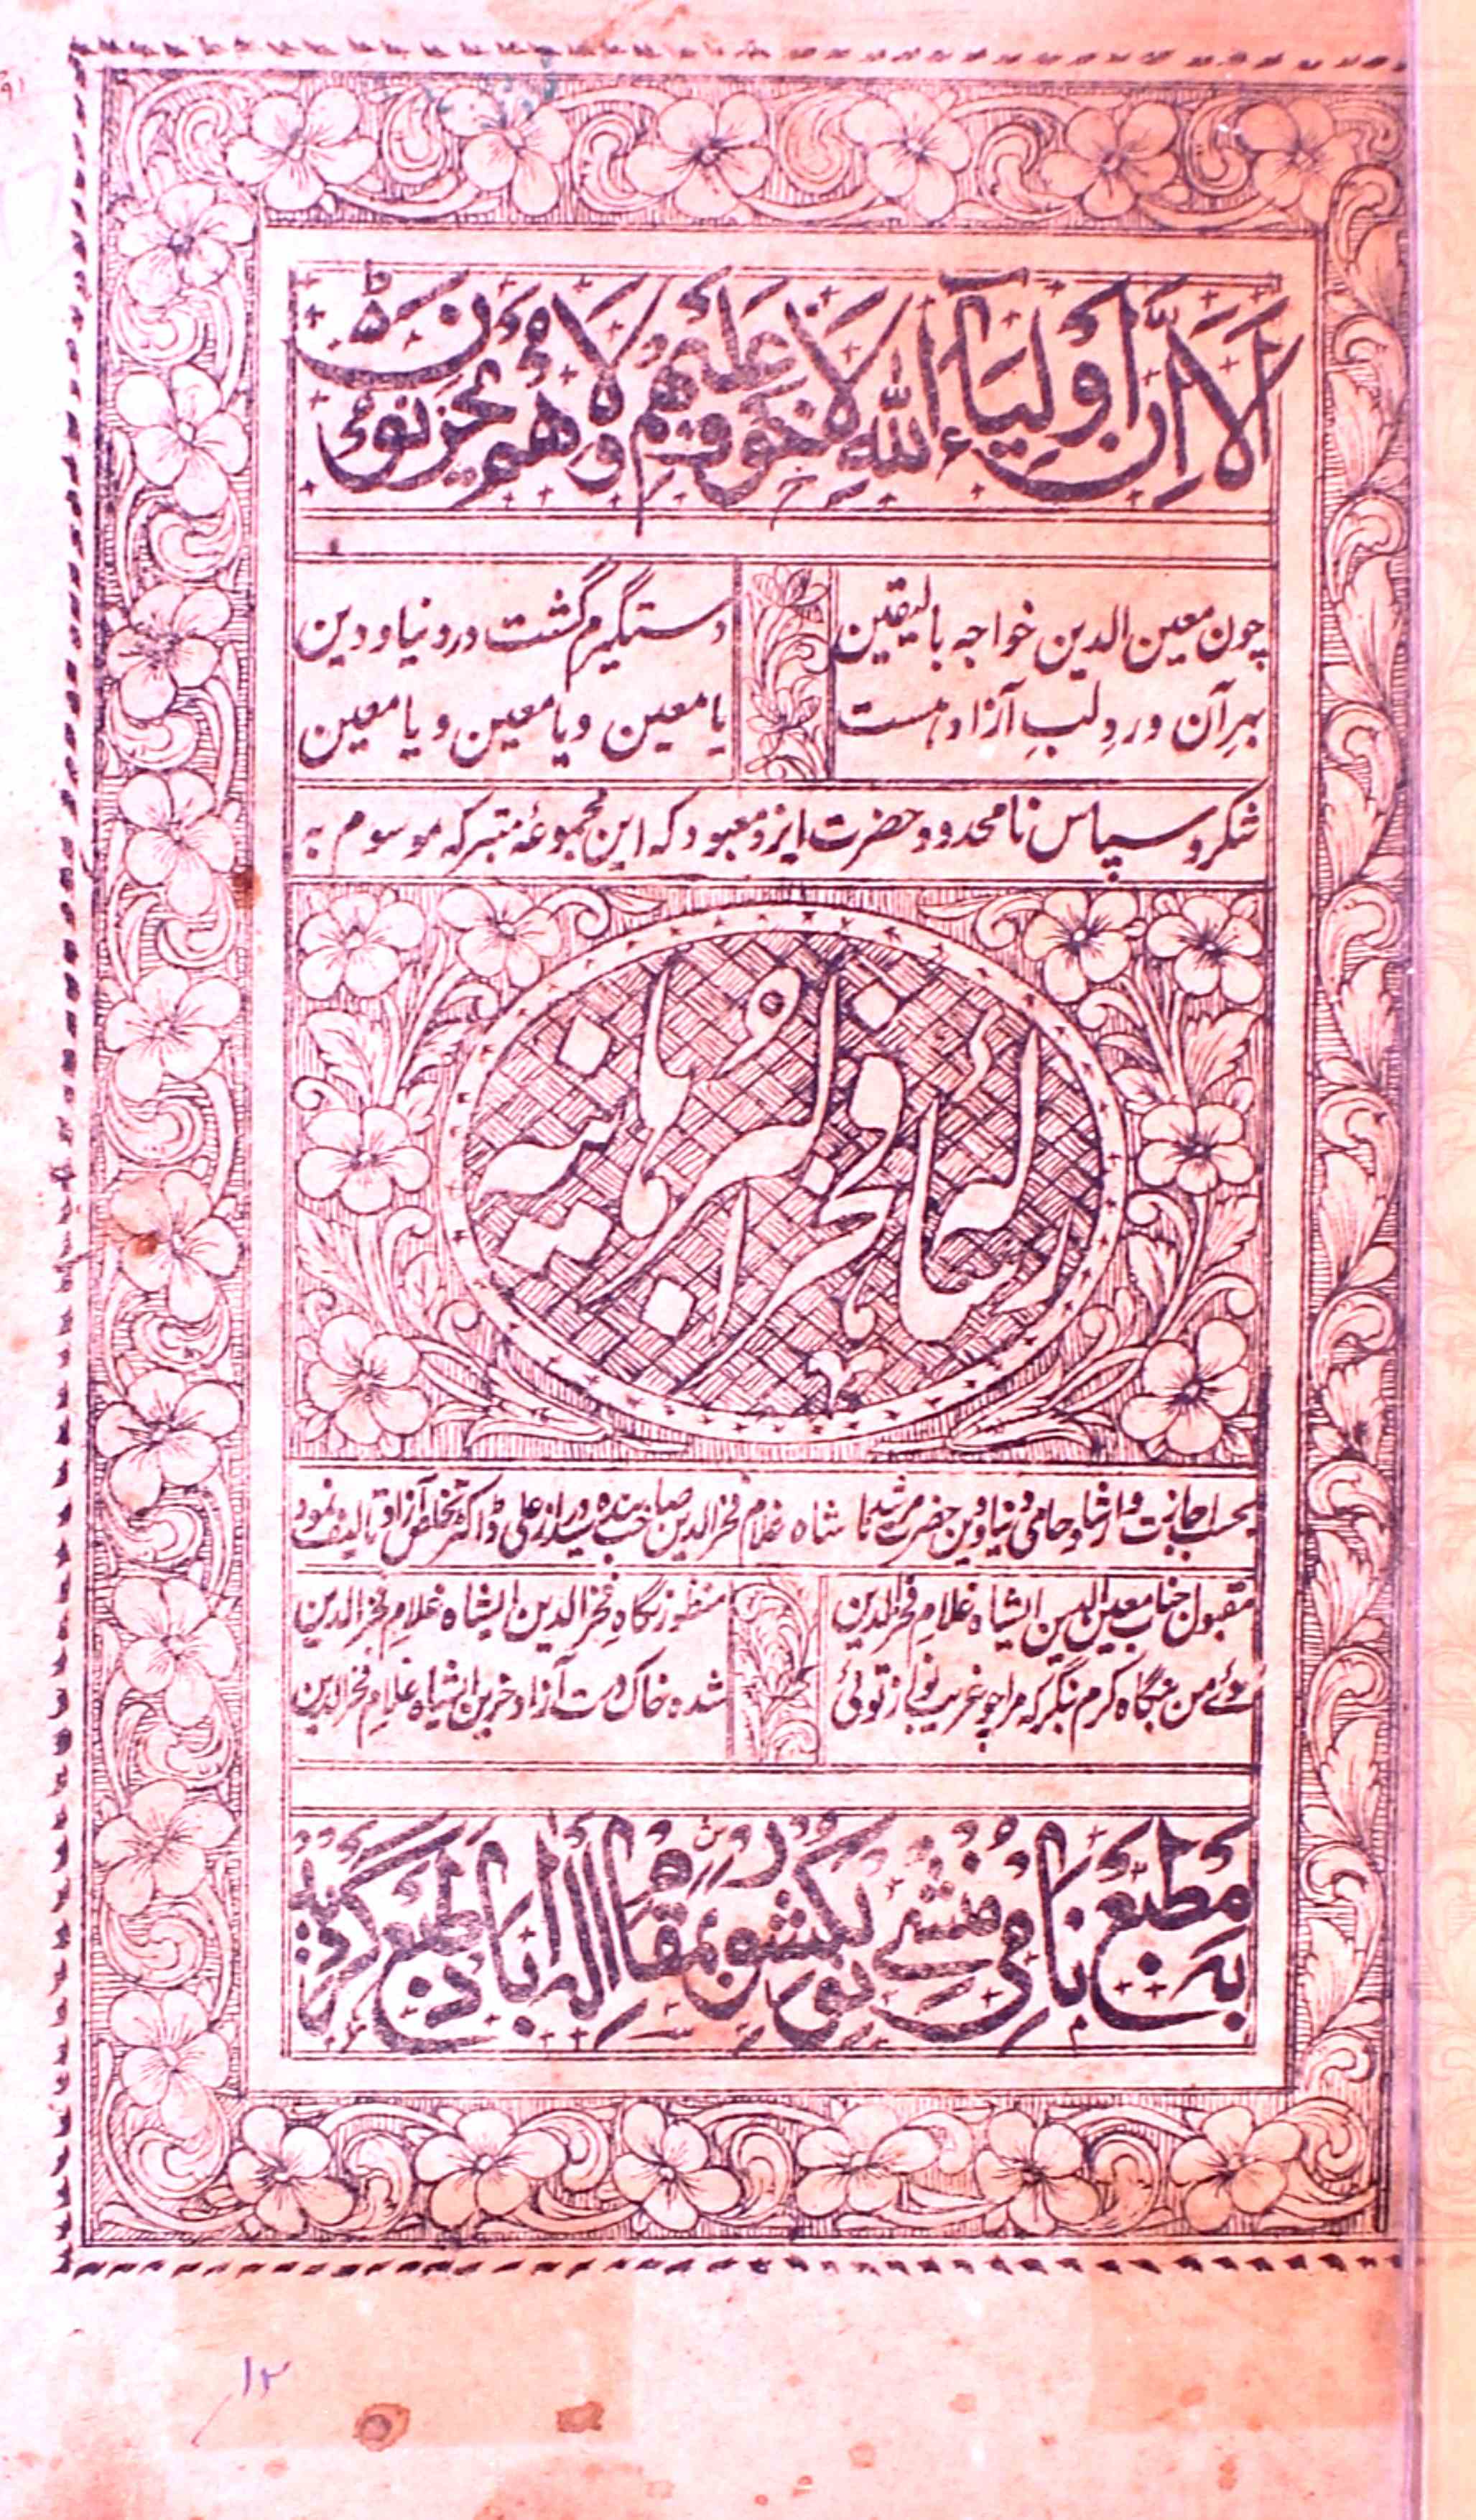 اَلَا اِنَّ اَوْلِيَآءَ اللّٰهِ لَا خَوْفٌ عَلَيْهِمْ وَلَا هُمْ يَحْزَنُوْنَ
چون معین الدین خواجہ بالیقین دستگیرم گشت در دنیا و دین
بہرِ آن وردِ لبِ آزاد ہست یا معین و یا معین و یا معین
شکر و سپاس نا محدود حضرت ایزد معبود کہ این مجموعۂ متبرکہ موسوم بہ
رسائل فخر
بحسب اجازت و ارشاد حامی دنیا و دین حضرت مرشدنا شاہ غلام فخر الدین صاحب بندہ سید علی ڈاکٹر تخلص آزاد تالیف نمود
مقبول جناب معین الدین ایشاہ غلامِ فخر الدین منظور نگاہِ فخر الدین ایشاہ غلامِ فخر الدین
سوئے من بنگاہ کرم بنگر کہ مرا چو غریب نواز توئی شدہ خاک درت آزاد حزین ایشاہ غلامِ فخر الدین
بہ مطبع نامی منشی نولکشور بمقام الہ آباد طبع گردید
۱۲